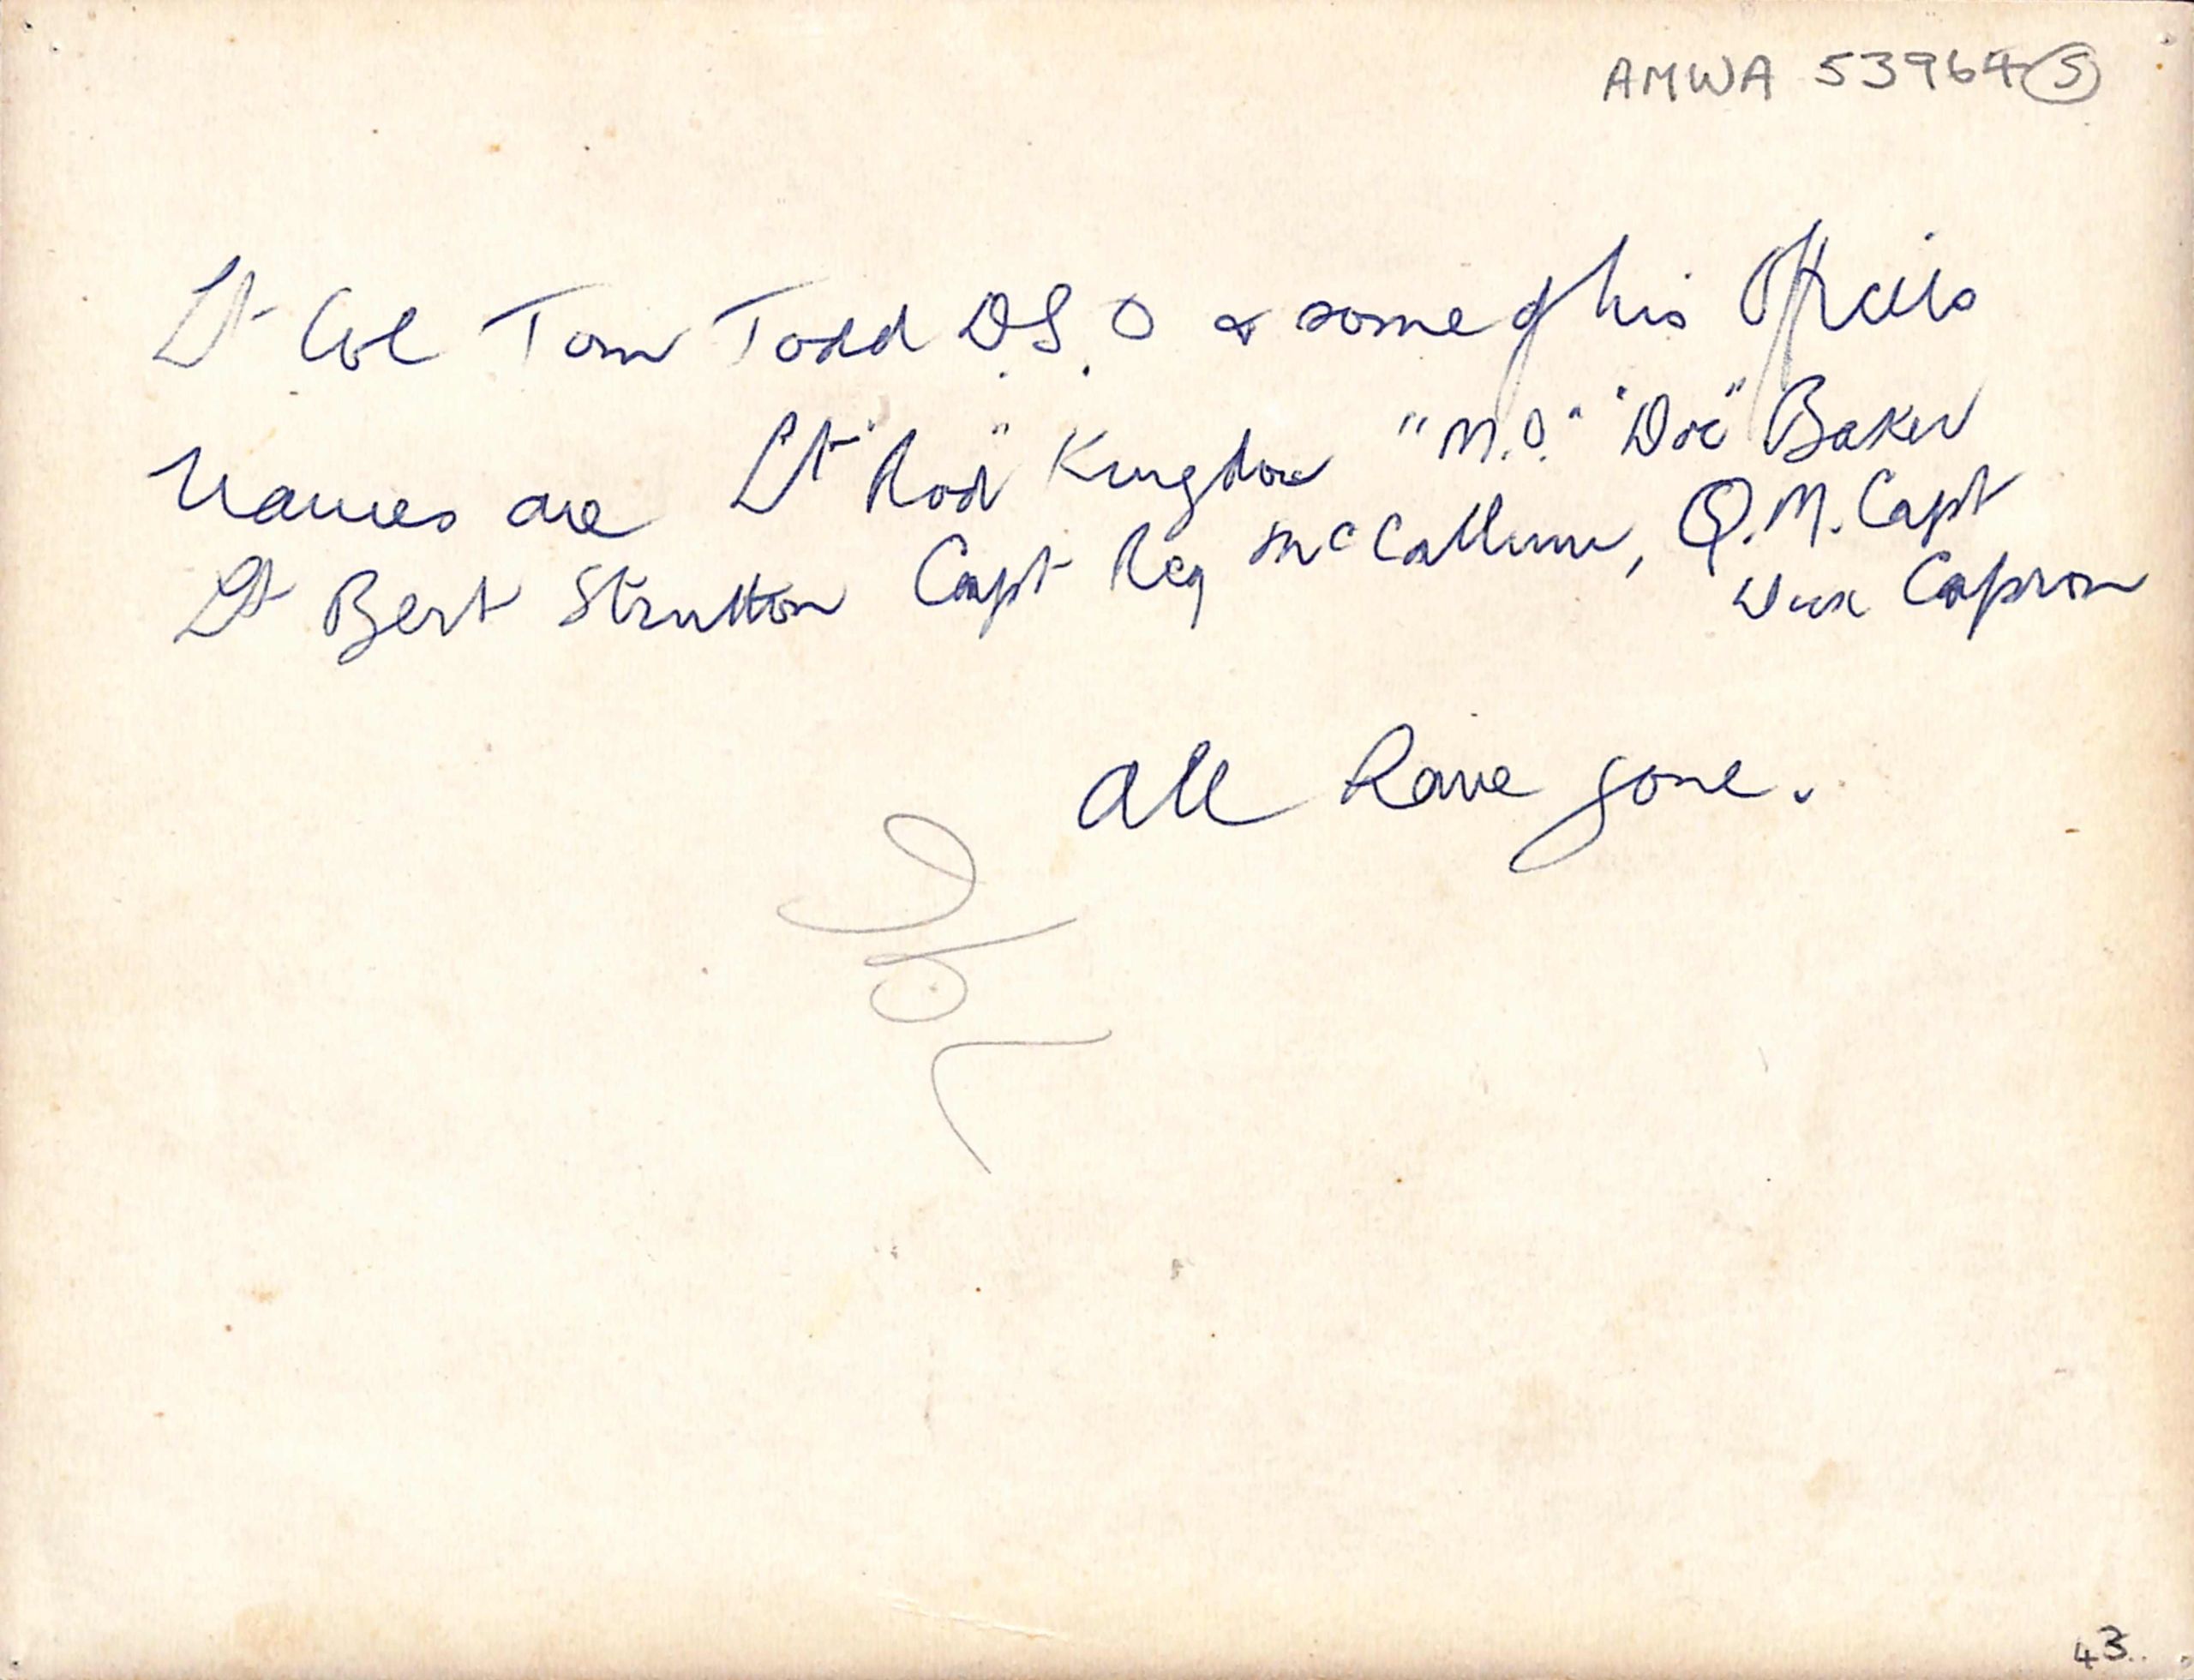 AMWA 53964 5
Lt Col Tom Todd D.S.O & some of his Officers
Names are Lt "Rod" Kingdon "M.O." "Doc" Baker
Lt Bert Strutton Capt Reg McCallum, Q.M. Capt
Capron
All have gone.
43